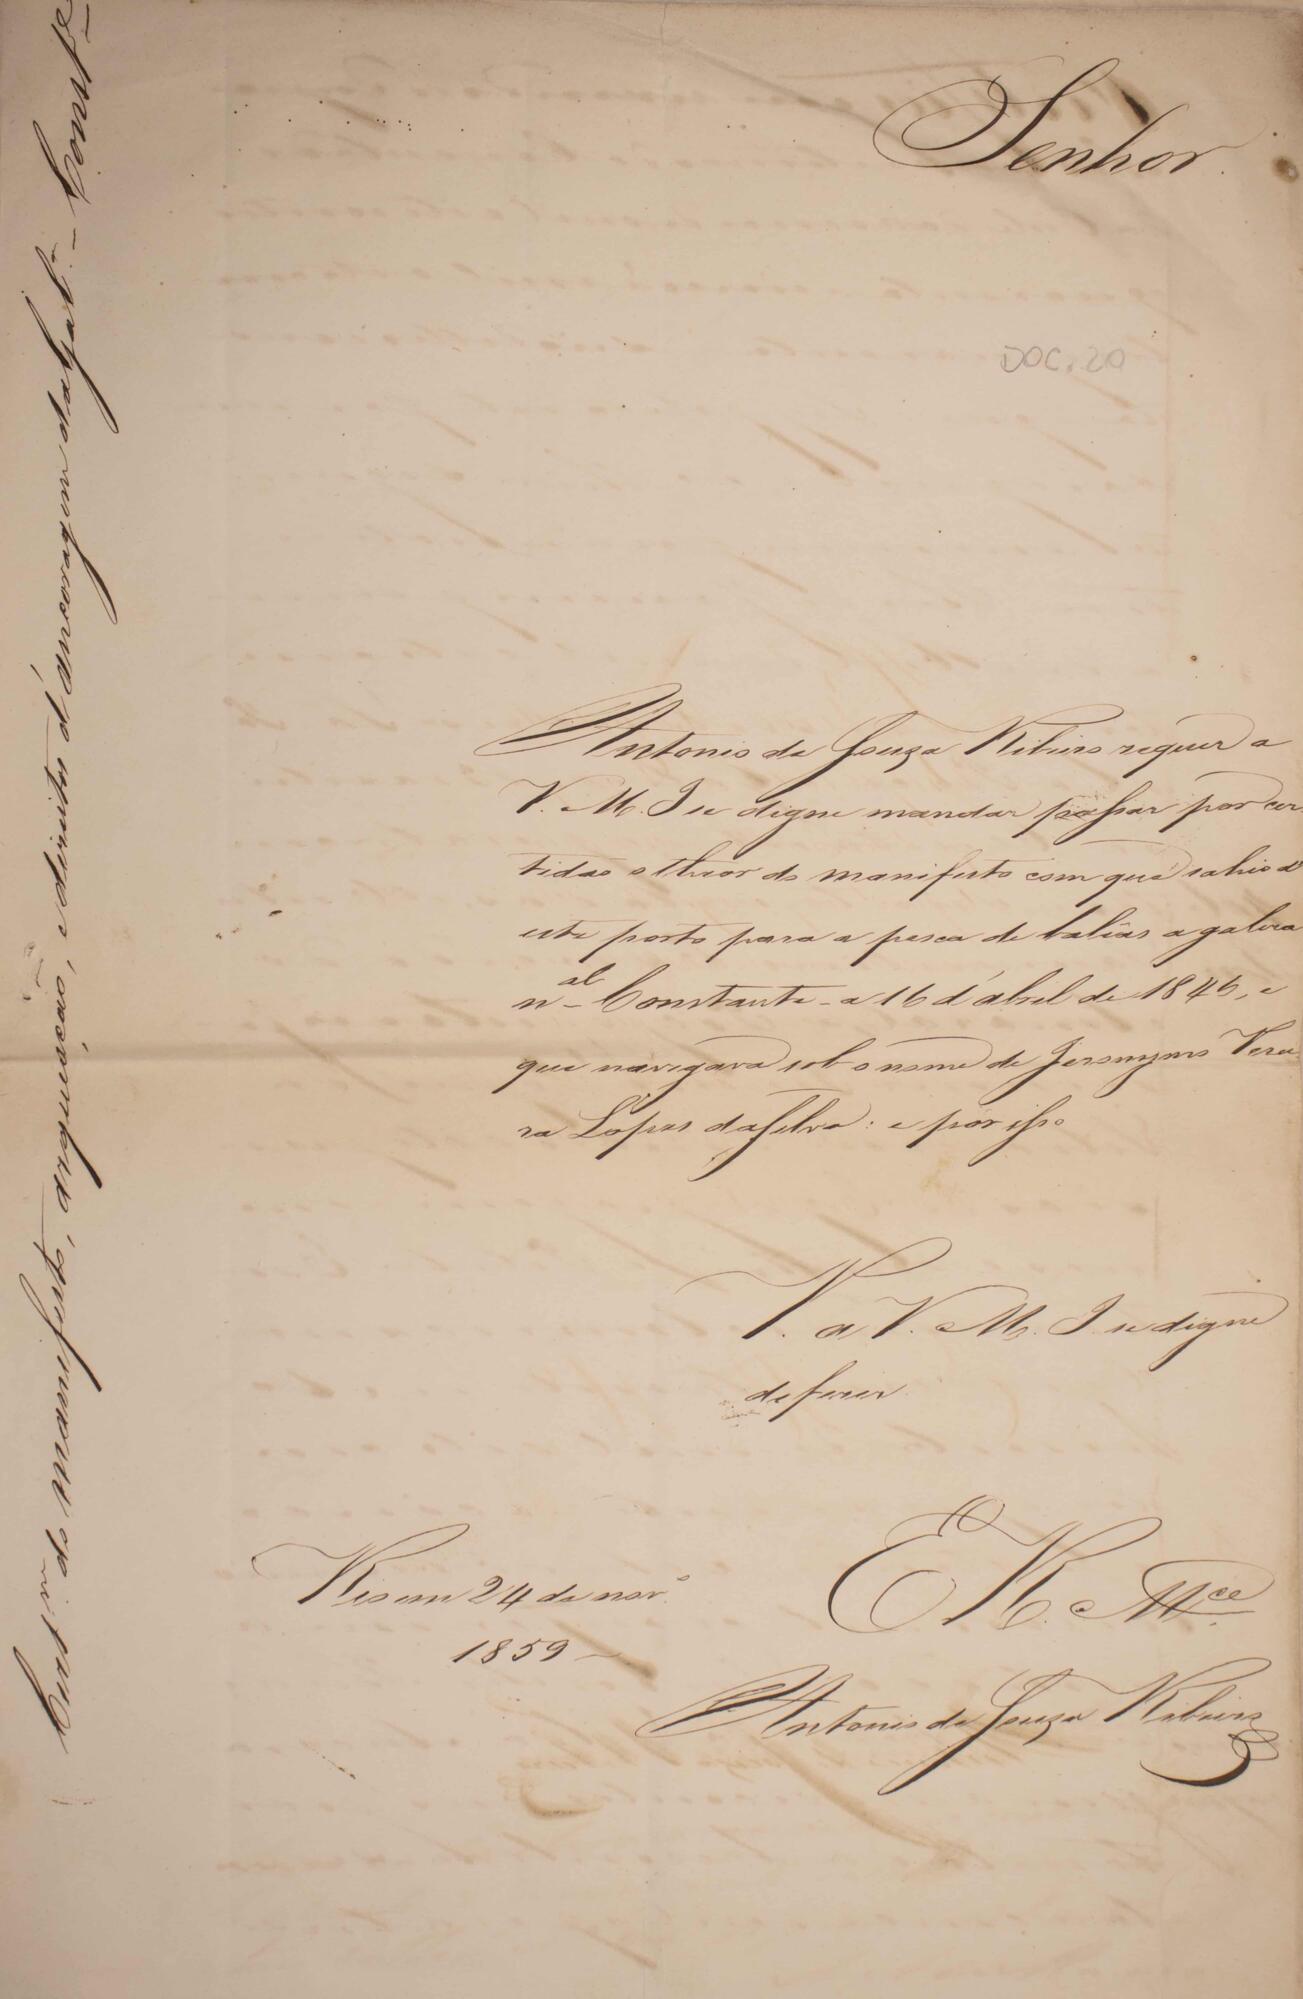 Senhor.
DOC. 20
Antonio de Souza Ribeiro requer a
V. M. I se digne mandar passar por cer
tidão o theor do manifesto com que sahio d'
este porto para a pesca de balêas a galera
n.al Constante a 16 d'abril de 1846, e
que navegava sob o nome de Jeronymo Vera
ra Lopes da Silva: e por isso
P. a V. M. I se digne
deferir
E R. Mce
Rio em 24 de novo.
1859
Antonio de Souza Ribeiro
Cert.m do manifesto, arqueação, e direitos d'áncoragem da gal.a Const.e